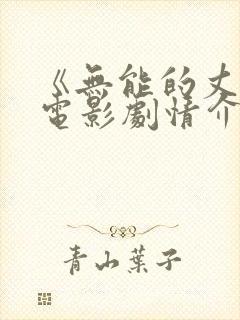 《無能的丈
電影劇情介
青山葉子